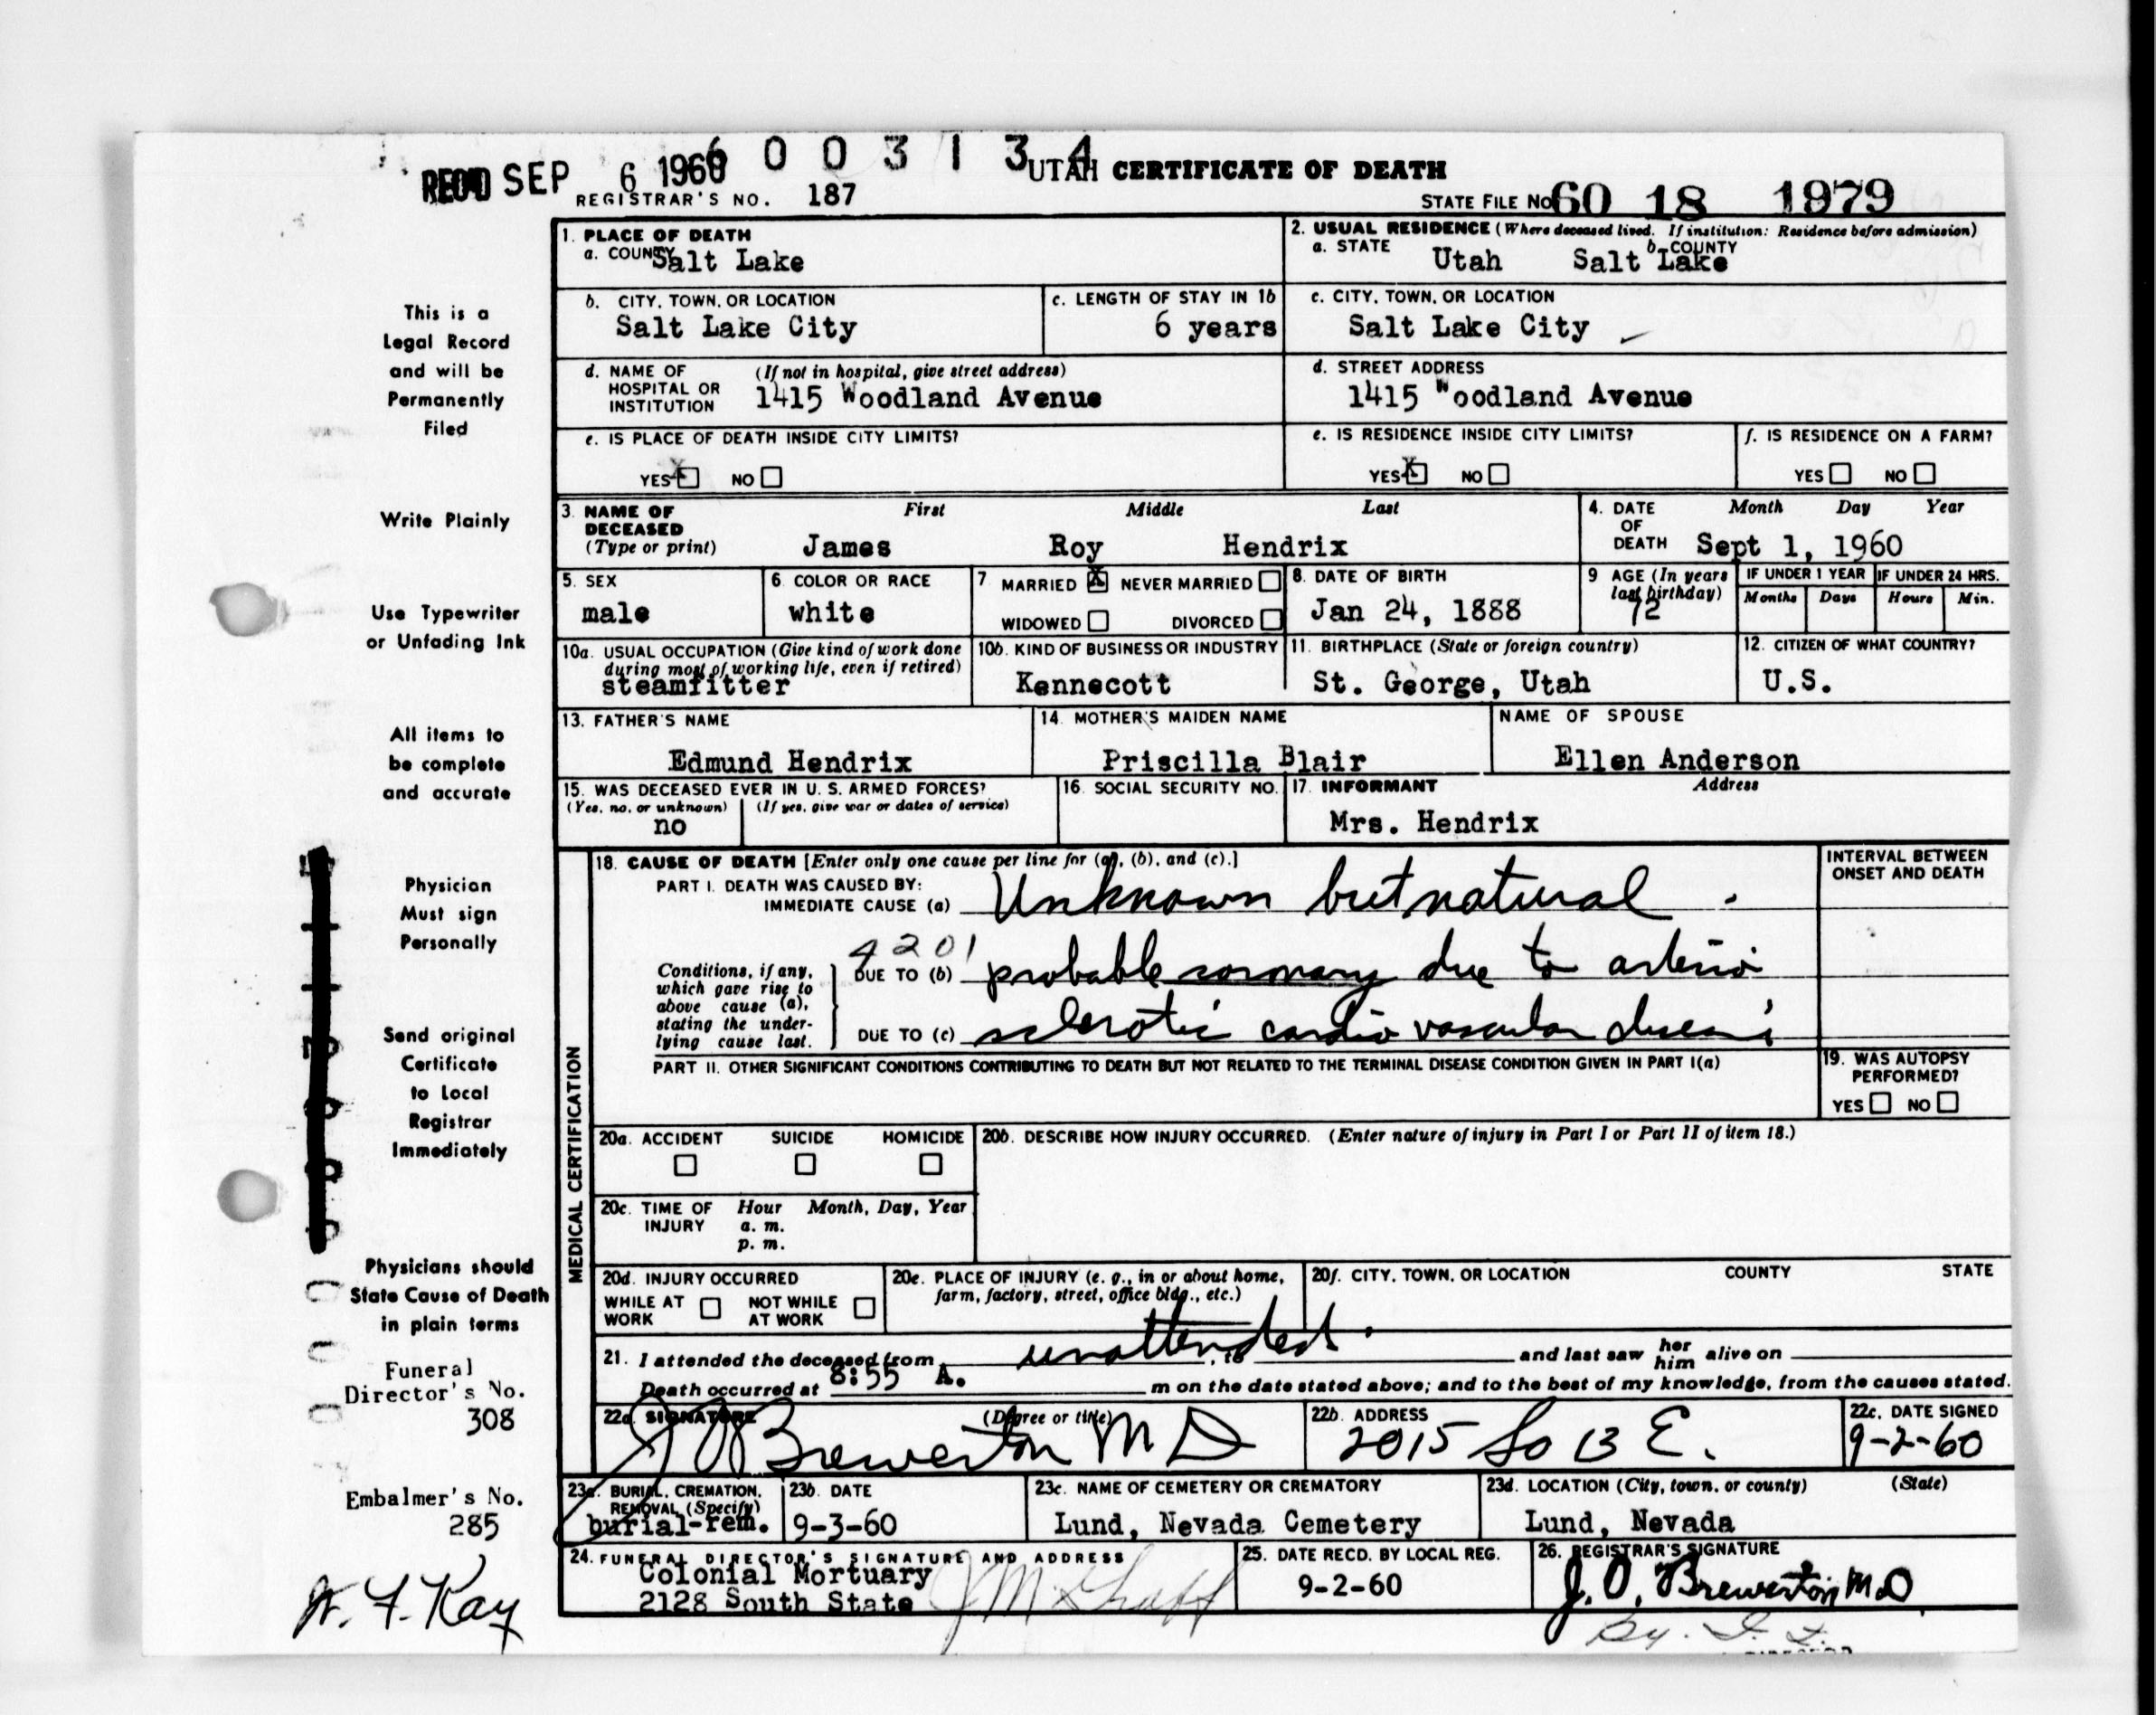 6 0 0 3 1 3 4
REC'D SEP 6 1960
UTAH CERTIFICATE OF DEATH
REGISTRAR'S NO. 187
STATE FILE NO. 60 18 1979
1. PLACE OF DEATH
a. COUNTY Salt Lake
2. USUAL RESIDENCE (Where deceased lived. If institution: Residence before admission)
a. STATE Utah b. COUNTY Salt Lake
b. CITY, TOWN, OR LOCATION
Salt Lake City
c. LENGTH OF STAY IN 1b
6 years
c. CITY, TOWN, OR LOCATION
Salt Lake City
d. NAME OF HOSPITAL OR INSTITUTION (If not in hospital, give street address)
1415 Woodland Avenue
d. STREET ADDRESS
1415 Woodland Avenue
e. IS PLACE OF DEATH INSIDE CITY LIMITS?
YES X NO
e. IS RESIDENCE INSIDE CITY LIMITS?
YES X NO
f. IS RESIDENCE ON A FARM?
YES NO
3. NAME OF DECEASED (Type or print)
First Middle Last
James Roy Hendrix
4. DATE OF DEATH Month Day Year
Sept 1, 1960
5. SEX
male
6. COLOR OR RACE
white
7. MARRIED X NEVER MARRIED
WIDOWED DIVORCED
8. DATE OF BIRTH
Jan 24, 1888
9 AGE (In years last birthday)
72
IF UNDER 1 YEAR
Months Days
IF UNDER 24 HRS.
Hours Min.
10a. USUAL OCCUPATION (Give kind of work done during most of working life, even if retired)
steamfitter
10b. KIND OF BUSINESS OR INDUSTRY
Kennecott
11. BIRTHPLACE (State or foreign country)
St. George, Utah
12. CITIZEN OF WHAT COUNTRY?
U.S.
13. FATHER'S NAME
Edmund Hendrix
14. MOTHER'S MAIDEN NAME
Priscilla Blair
NAME OF SPOUSE
Ellen Anderson
15. WAS DECEASED EVER IN U. S. ARMED FORCES?
(Yes, no, or unknown) (If yes, give war or dates of service)
no
16. SOCIAL SECURITY NO.
17. INFORMANT Address
Mrs. Hendrix
MEDICAL CERTIFICATION
18. CAUSE OF DEATH [Enter only one cause per line for (a), (b), and (c).]
INTERVAL BETWEEN ONSET AND DEATH
PART I. DEATH WAS CAUSED BY:
IMMEDIATE CAUSE (a) Unknown but natural.
4201
Conditions, if any, which gave rise to above cause (a), stating the underlying cause last.
DUE TO (b) probable coronary due to arterio
DUE TO (c) sclerotic cardio vascular disease
PART II. OTHER SIGNIFICANT CONDITIONS CONTRIBUTING TO DEATH BUT NOT RELATED TO THE TERMINAL DISEASE CONDITION GIVEN IN PART I(a)
19. WAS AUTOPSY PERFORMED?
YES NO
20a. ACCIDENT SUICIDE HOMICIDE
20b. DESCRIBE HOW INJURY OCCURRED. (Enter nature of injury in Part I or Part II of item 18.)
20c. TIME OF INJURY Hour Month, Day, Year
a. m.
p. m.
20d. INJURY OCCURRED
WHILE AT WORK NOT WHILE AT WORK
20e. PLACE OF INJURY (e. g., in or about home, farm, factory, street, office bldg., etc.)
20f. CITY, TOWN, OR LOCATION COUNTY STATE
21. I attended the deceased from unattended, to and last saw her him alive on
Death occurred at 8:55 A. m on the date stated above; and to the best of my knowledge, from the causes stated.
22a. SIGNATURE (Degree or title)
J O Brewerton M D
22b. ADDRESS
2015 So 13 E.
22c. DATE SIGNED
9-2-60
23a. BURIAL, CREMATION, REMOVAL (Specify)
burial-rem.
23b. DATE
9-3-60
23c. NAME OF CEMETERY OR CREMATORY
Lund, Nevada Cemetery
23d. LOCATION (City, town, or county) (State)
Lund, Nevada
24. FUNERAL DIRECTOR'S SIGNATURE AND ADDRESS
Colonial Mortuary
2128 South State
25. DATE RECD. BY LOCAL REG.
9-2-60
26. REGISTRAR'S SIGNATURE
J. O. Brewerton MD
This is a
Legal Record
and will be
Permanently
Filed
Write Plainly
Use Typewriter
or Unfading Ink
All items to
be complete
and accurate
Physician
Must sign
Personally
Send original
Certificate
to Local
Registrar
Immediately
Physicians should
State Cause of Death
in plain terms
Funeral
Director's No.
308
Embalmer's No.
285
W. F. Kay